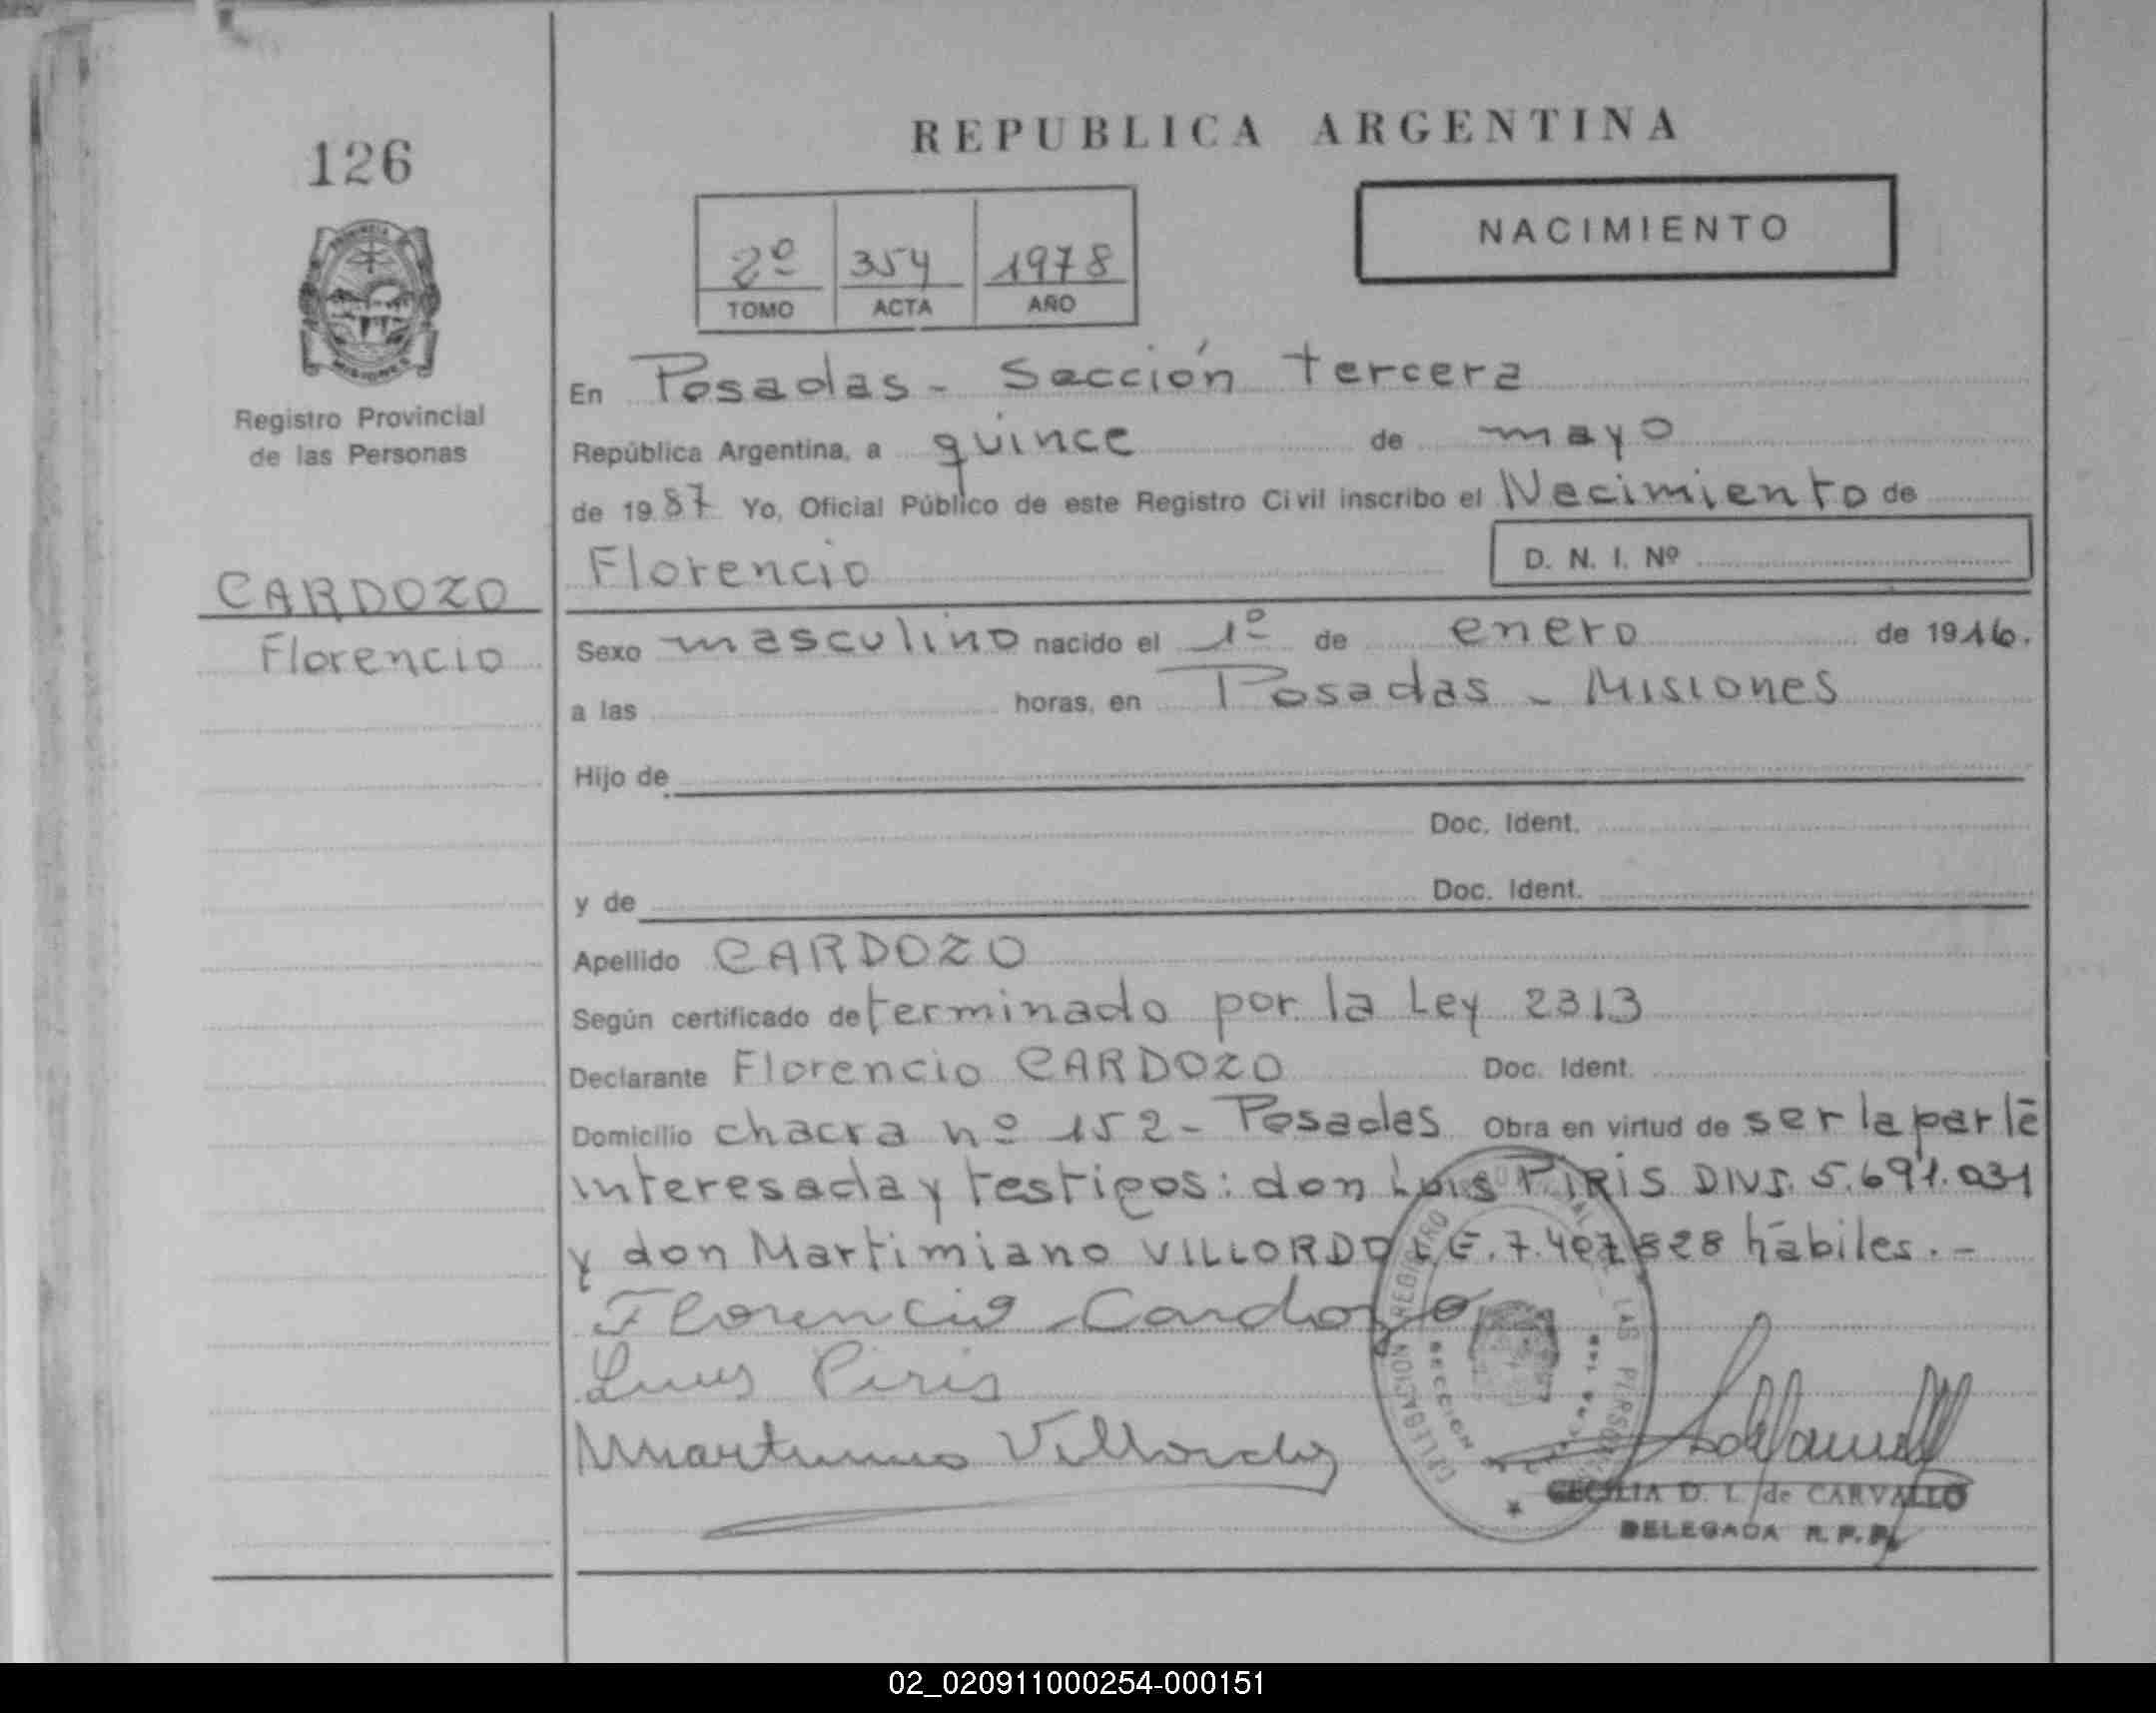 126
REPUBLICA ARGENTINA
NACIMIENTO
2º 354 1978
TOMO ACTA AÑO
PROVINCIA
MISIONES
Registro Provincial
de las Personas
CARDOZO
Florencio
En Posadas - Sección tercera
República Argentina, a quince de mayo
de 1987 Yo, Oficial Público de este Registro Civil inscribo el Nacimiento de
Florencio D. N. I. Nº
Sexo masculino nacido el 1º de enero de 1916.
a las horas, en Posadas - Misiones
Hijo de
Doc. Ident.
y de Doc. Ident.
Apellido CARDOZO
Según certificado determinado por la Ley 2313
Declarante Florencio CARDOZO Doc. Ident.
Domicilio chacra nº 152 - Posadas Obra en virtud de ser la parte
interesada y testigos: don Luis PIRIS DNI. 5.691.031
y don Martimiano VILLORDO L.E. 7.407.828 hábiles. -
Florencio Cardozo
Luis Piris
Martimiano Villordo
DELEGACION REGISTRO LAS PERSONAS
SECCION
CECILIA D. L. de CARVALLO
DELEGADA R. P. P.
02_020911000254-000151